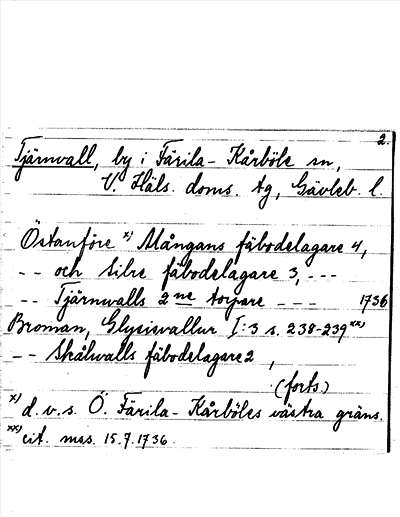 2.
Tjärnvall, by i Färila-Kårböle sn,
V. Häls. doms. tg, Gävleb. l.
Östanföre x) Mångans fäbodelagare 4,
-- och Silre fäbodelagare 3, ---
-- Tjärnvalls 2 ne torpare --- 1736
Broman, Glysisvallur I:3 s. 238-239 xx)
-- Skålvalls fäbodelagare 2,
(forts.)
x) d.v.s. Ö. Färila-Kårböles västra gräns.
xx) cit. mas. 15.7.1736.